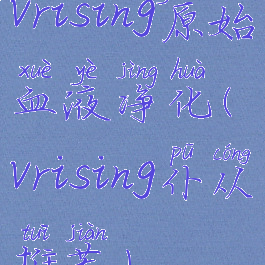 vrising原始
xuè yè jìng huà
血液净化(
pū cóng
vrising仆从
tuī jiàn
推荐)